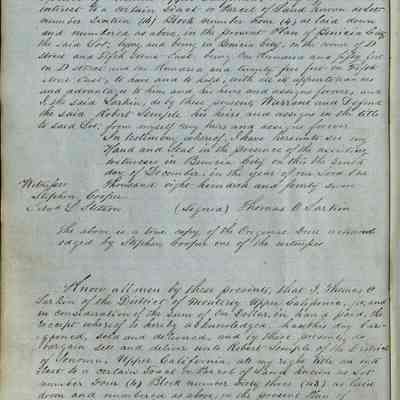 interest to a certain Tract or Parcel of Land known as Lot
number Sixteen (16) Block number Four (4) as laid down
and numbered as above, in the present Plan of Benicia City
the said Lot, lying and being in Benicia City, in the corner of D
Street and Fifth Street East, being One Hundred and fifty feet
on D Street, and One Hundred and twenty five feet on Fifth
Street East, to have and to hold, with all its appurtenances
and advantages to him and his heirs and assigns forever, and
I, the said Larkin, do by these presents, Warrant and Defend
the said Robert Semple his heirs and assigns in the title
to said Lot, from myself my heirs and assigns forever
In testimony whereof, I have hereunto set my
Hand and Seal in the presence of the assisting
witnesses in Benicia City on this the tenth
day of December, in the year of our Lord One
Witnesses thousand eight hundred and forty seven
Stephen Cooper
L Stetson (Signed) Thomas O Larkin
The above is a true copy of the Original Deed acknowl
edged by Stephen Cooper one of the witnesses
Know all men by these presents, that I, Thomas O
Larkin of the District of Monterey Upper California, for, and
in consideration of the Sum of One Dollar, in hand paid, the
receipt whereof is hereby acknowledged, hath this day bar-
gained, sold and delivered, and by these presents, do
bargain sell and deliver unto Robert Semple of the District
of Sonoma, Upper California, all my right title and inte
rest to a certain Tract or Parcel of Land known as Lot
number Four (4) Block number Forty three (43) as laid
down and numbered as above, in the present Plan of